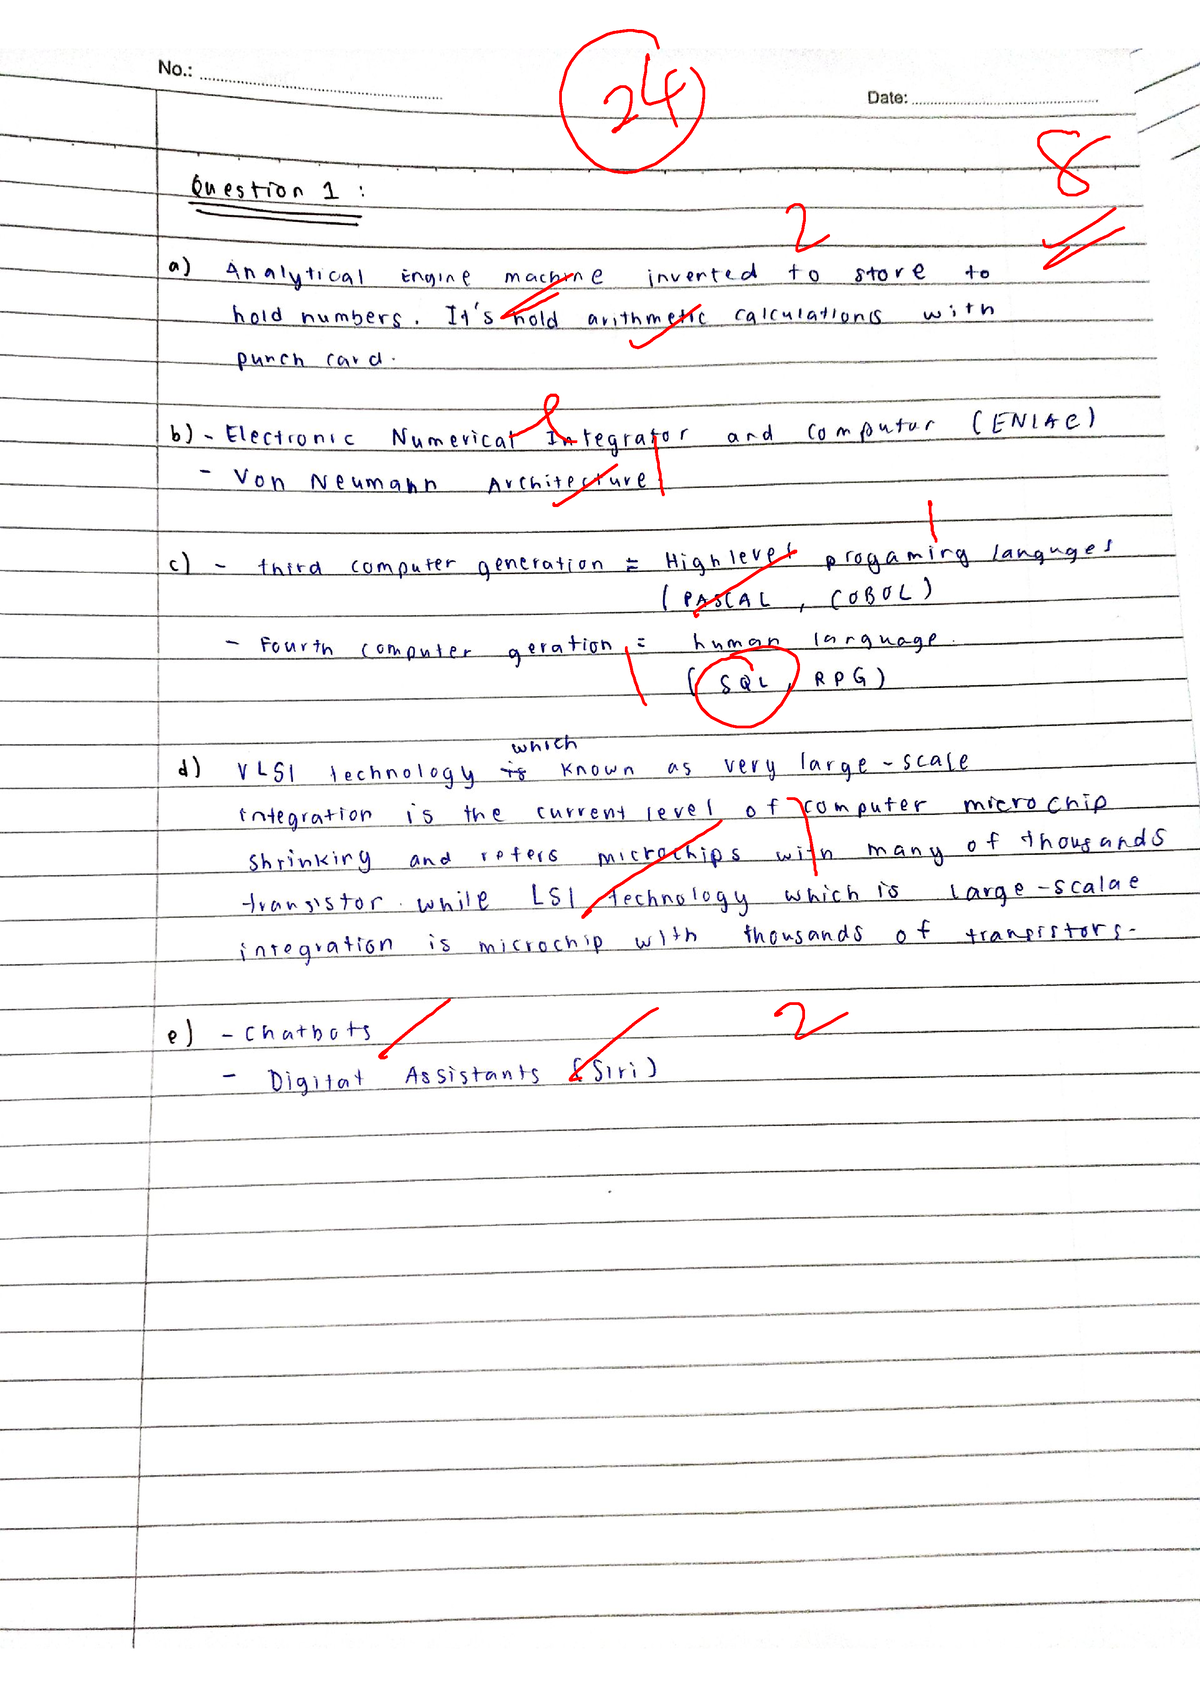 No.:
24
Date:
8
Question 1 :
2
a) Analytical Engine machine invented to store to
hold numbers. It's hold arithmetic calculations with
punch card.
b) - Electronic Numerical Integrator and Computer (ENIAC)
- Von Neumann Architecture 1
1
c) - third computer generation = High level progaming languges
(PASCAL, COBOL)
- Fourth computer geration = human language.
1 (SQL, RPG)
which
d) VLSI technology is known as very large - scale
integration is the current level of computer microchip
shrinking and refers microchips with many of thousands
transistor. while LSI technology which is large - scalae
integration is microchip with thousands of transistors.
e) - Chatbots 2
- Digital Assistants (Siri)